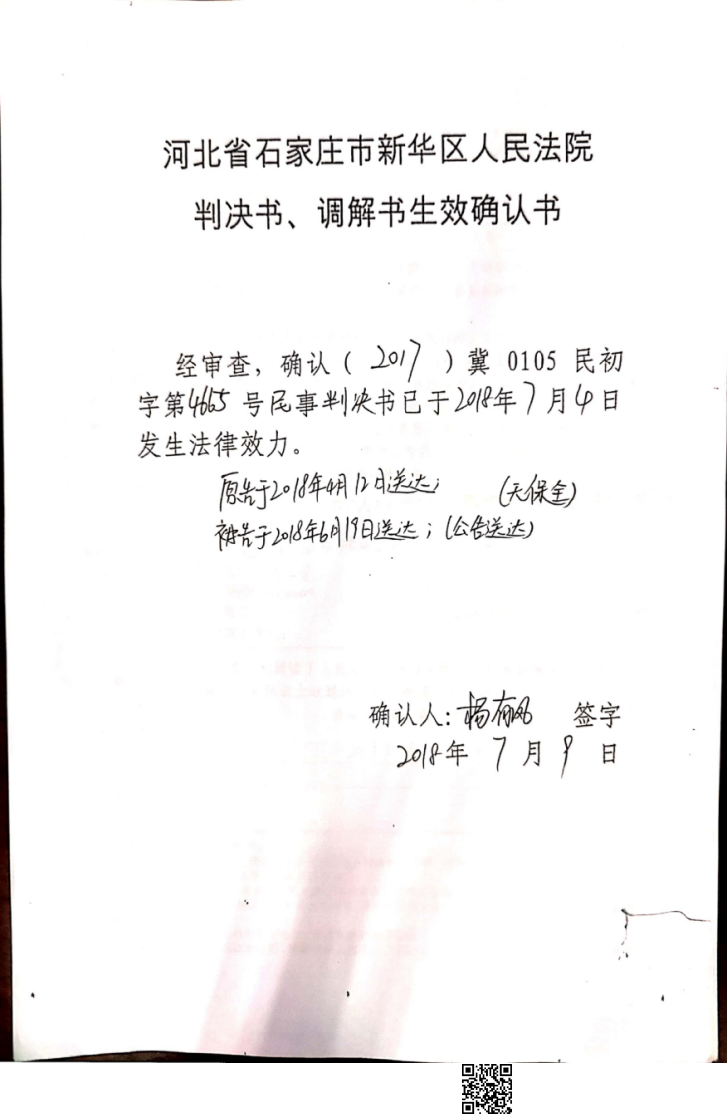 河北省石家庄市新华区人民法院
判决书、调解书生效确认书
经审查，确认（2017）冀 0105 民初
字第4665 号民事判决书已于2018年7月4日
发生法律效力。
原告于2018年4月12日送达； (无保全)
被告于2018年6月19日送达；(公告送达)
确认人：杨有 签字
2018年 7 月 9 日